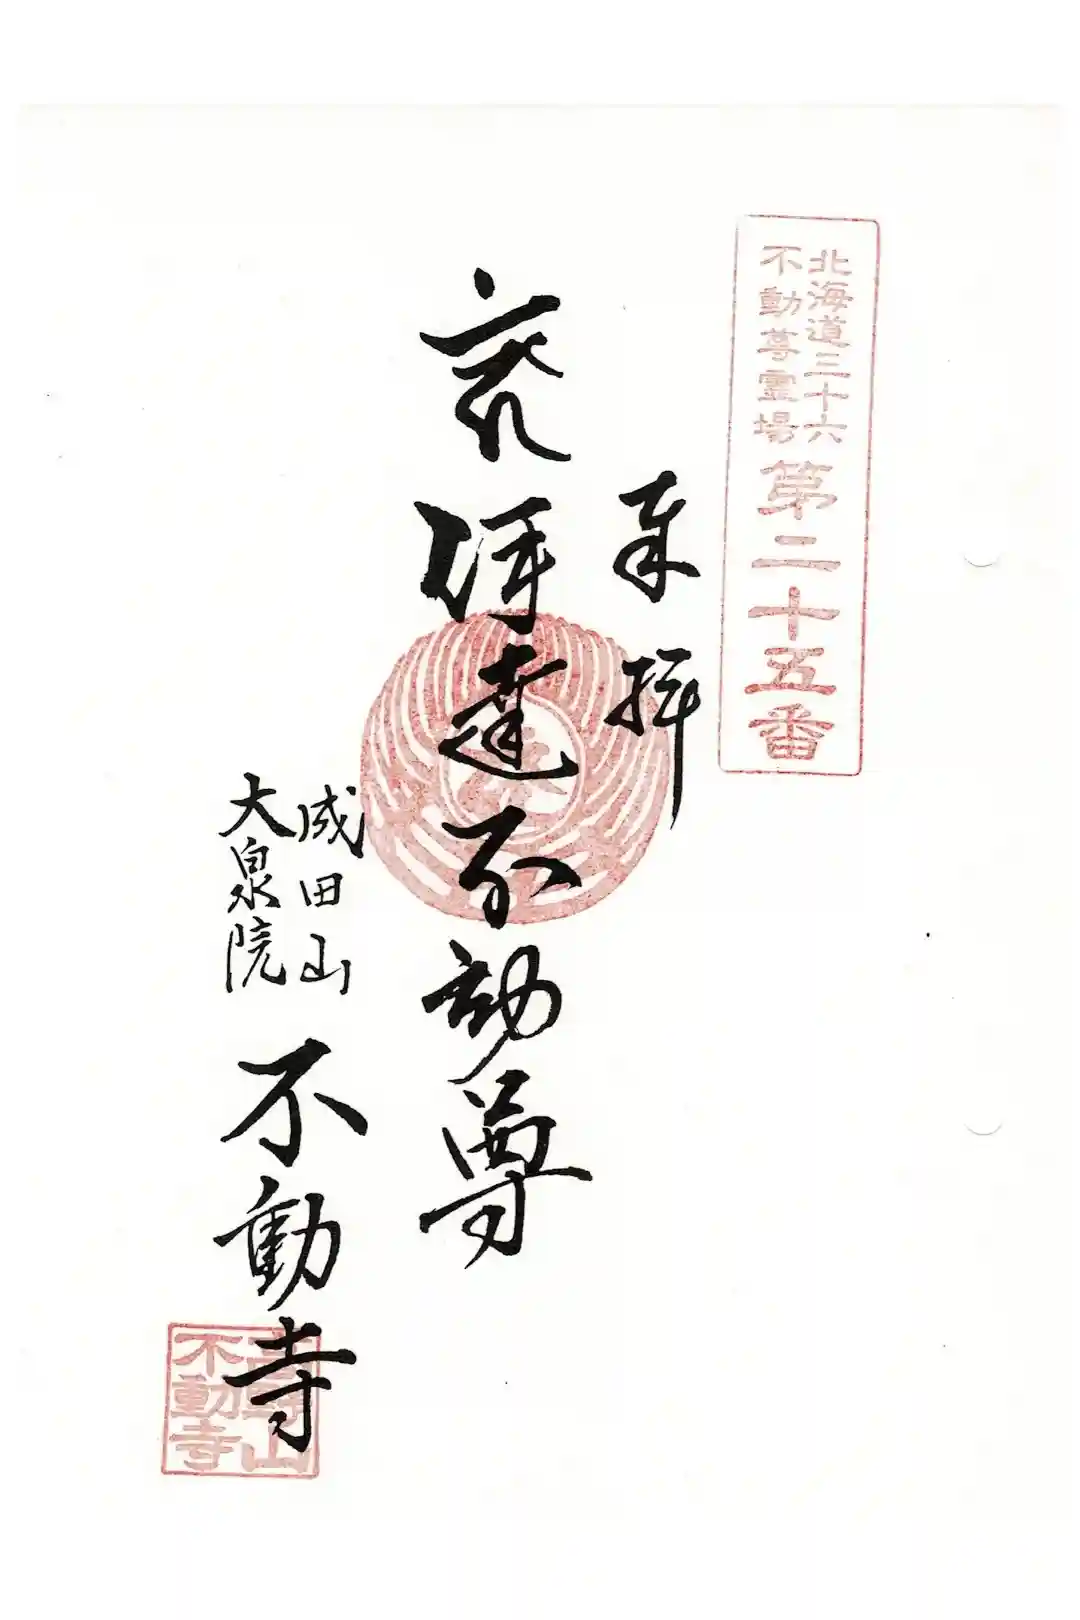 北海道三十六
不動尊霊場
第二十五番
奉拝
伊達不動尊
成田山
大泉院
不動寺
山
不動寺